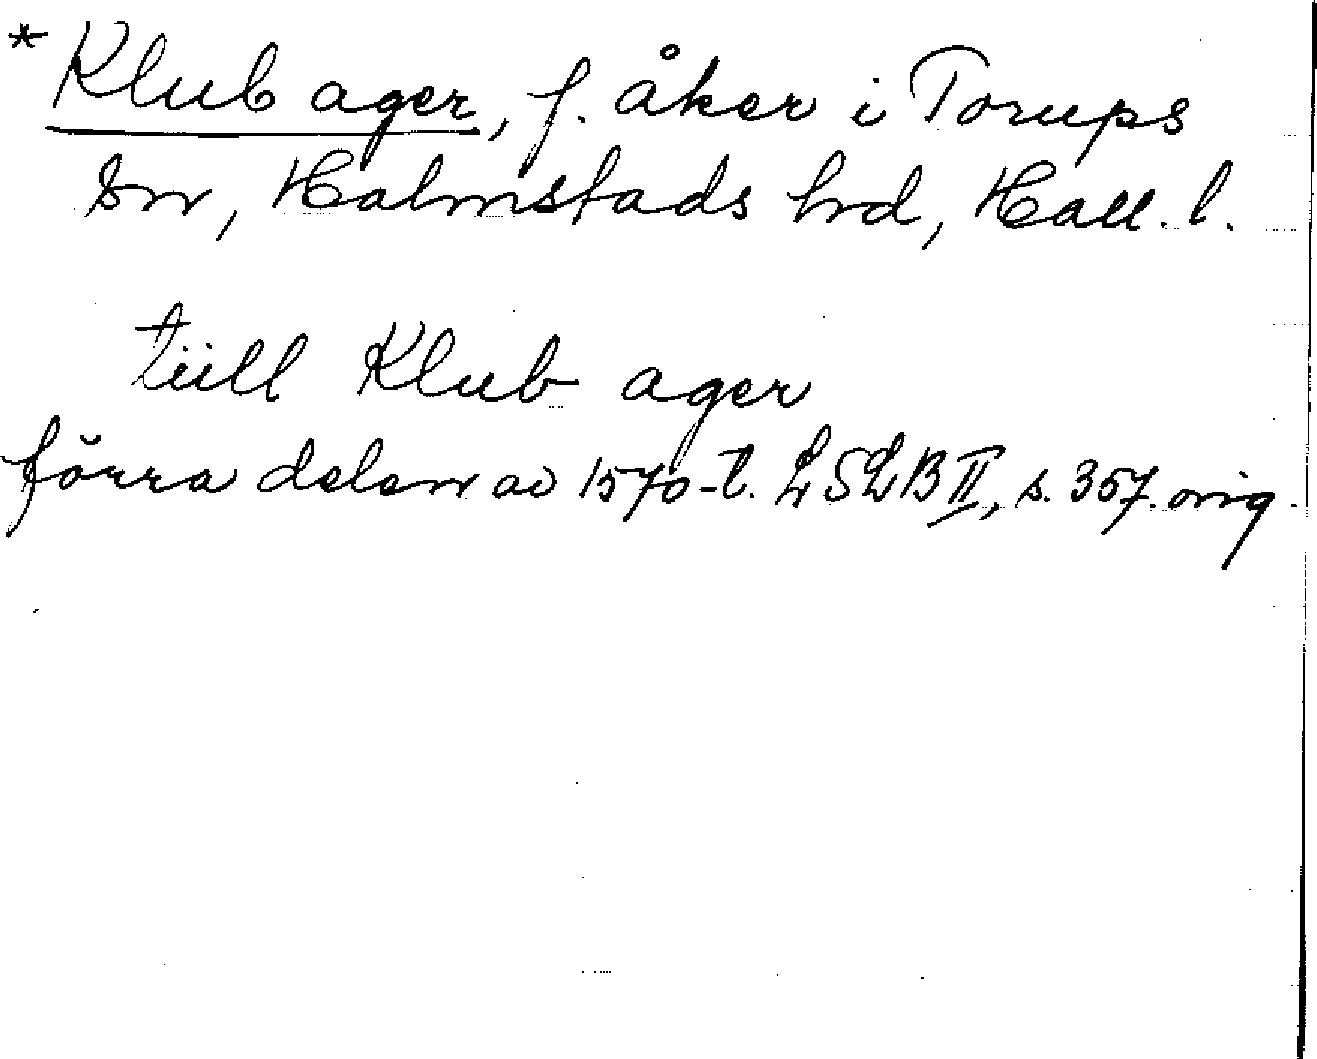 * Klub ager, f. åker i Torups
sn, Halmstads hrd, Hall. l.
tiill Klub ager
förra delen av 1570-t. LSLB II, s. 357. orig.